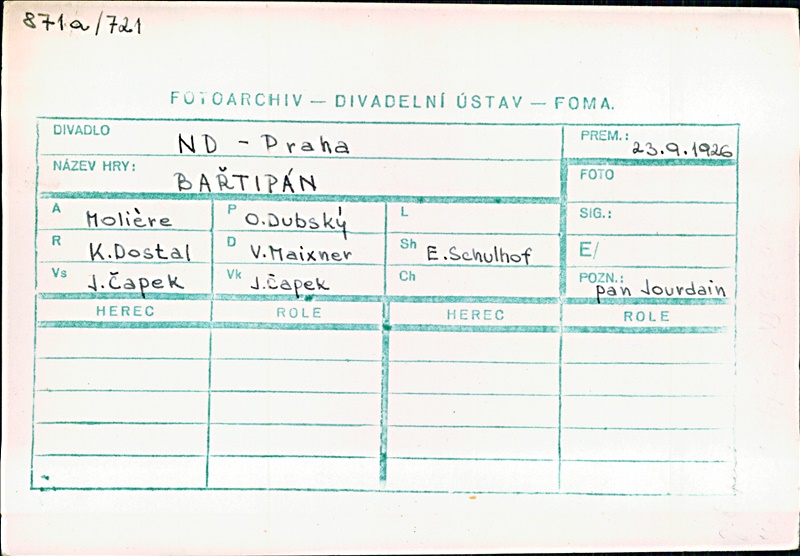 871a/721
FOTOARCHIV — DIVADELNÍ ÚSTAV — FOMA.
DIVADLO ND - Praha PREM.: 23.9.1926
NÁZEV HRY: BAŘTIPÁN FOTO
A Molière P O.Dubský L SIG.:
R K.Dostal D V.Maixner Sh E.Schulhof E/
Vs J.Čapek Vk J.Čapek Ch POZN.: pan Jourdain
HEREC ROLE HEREC ROLE